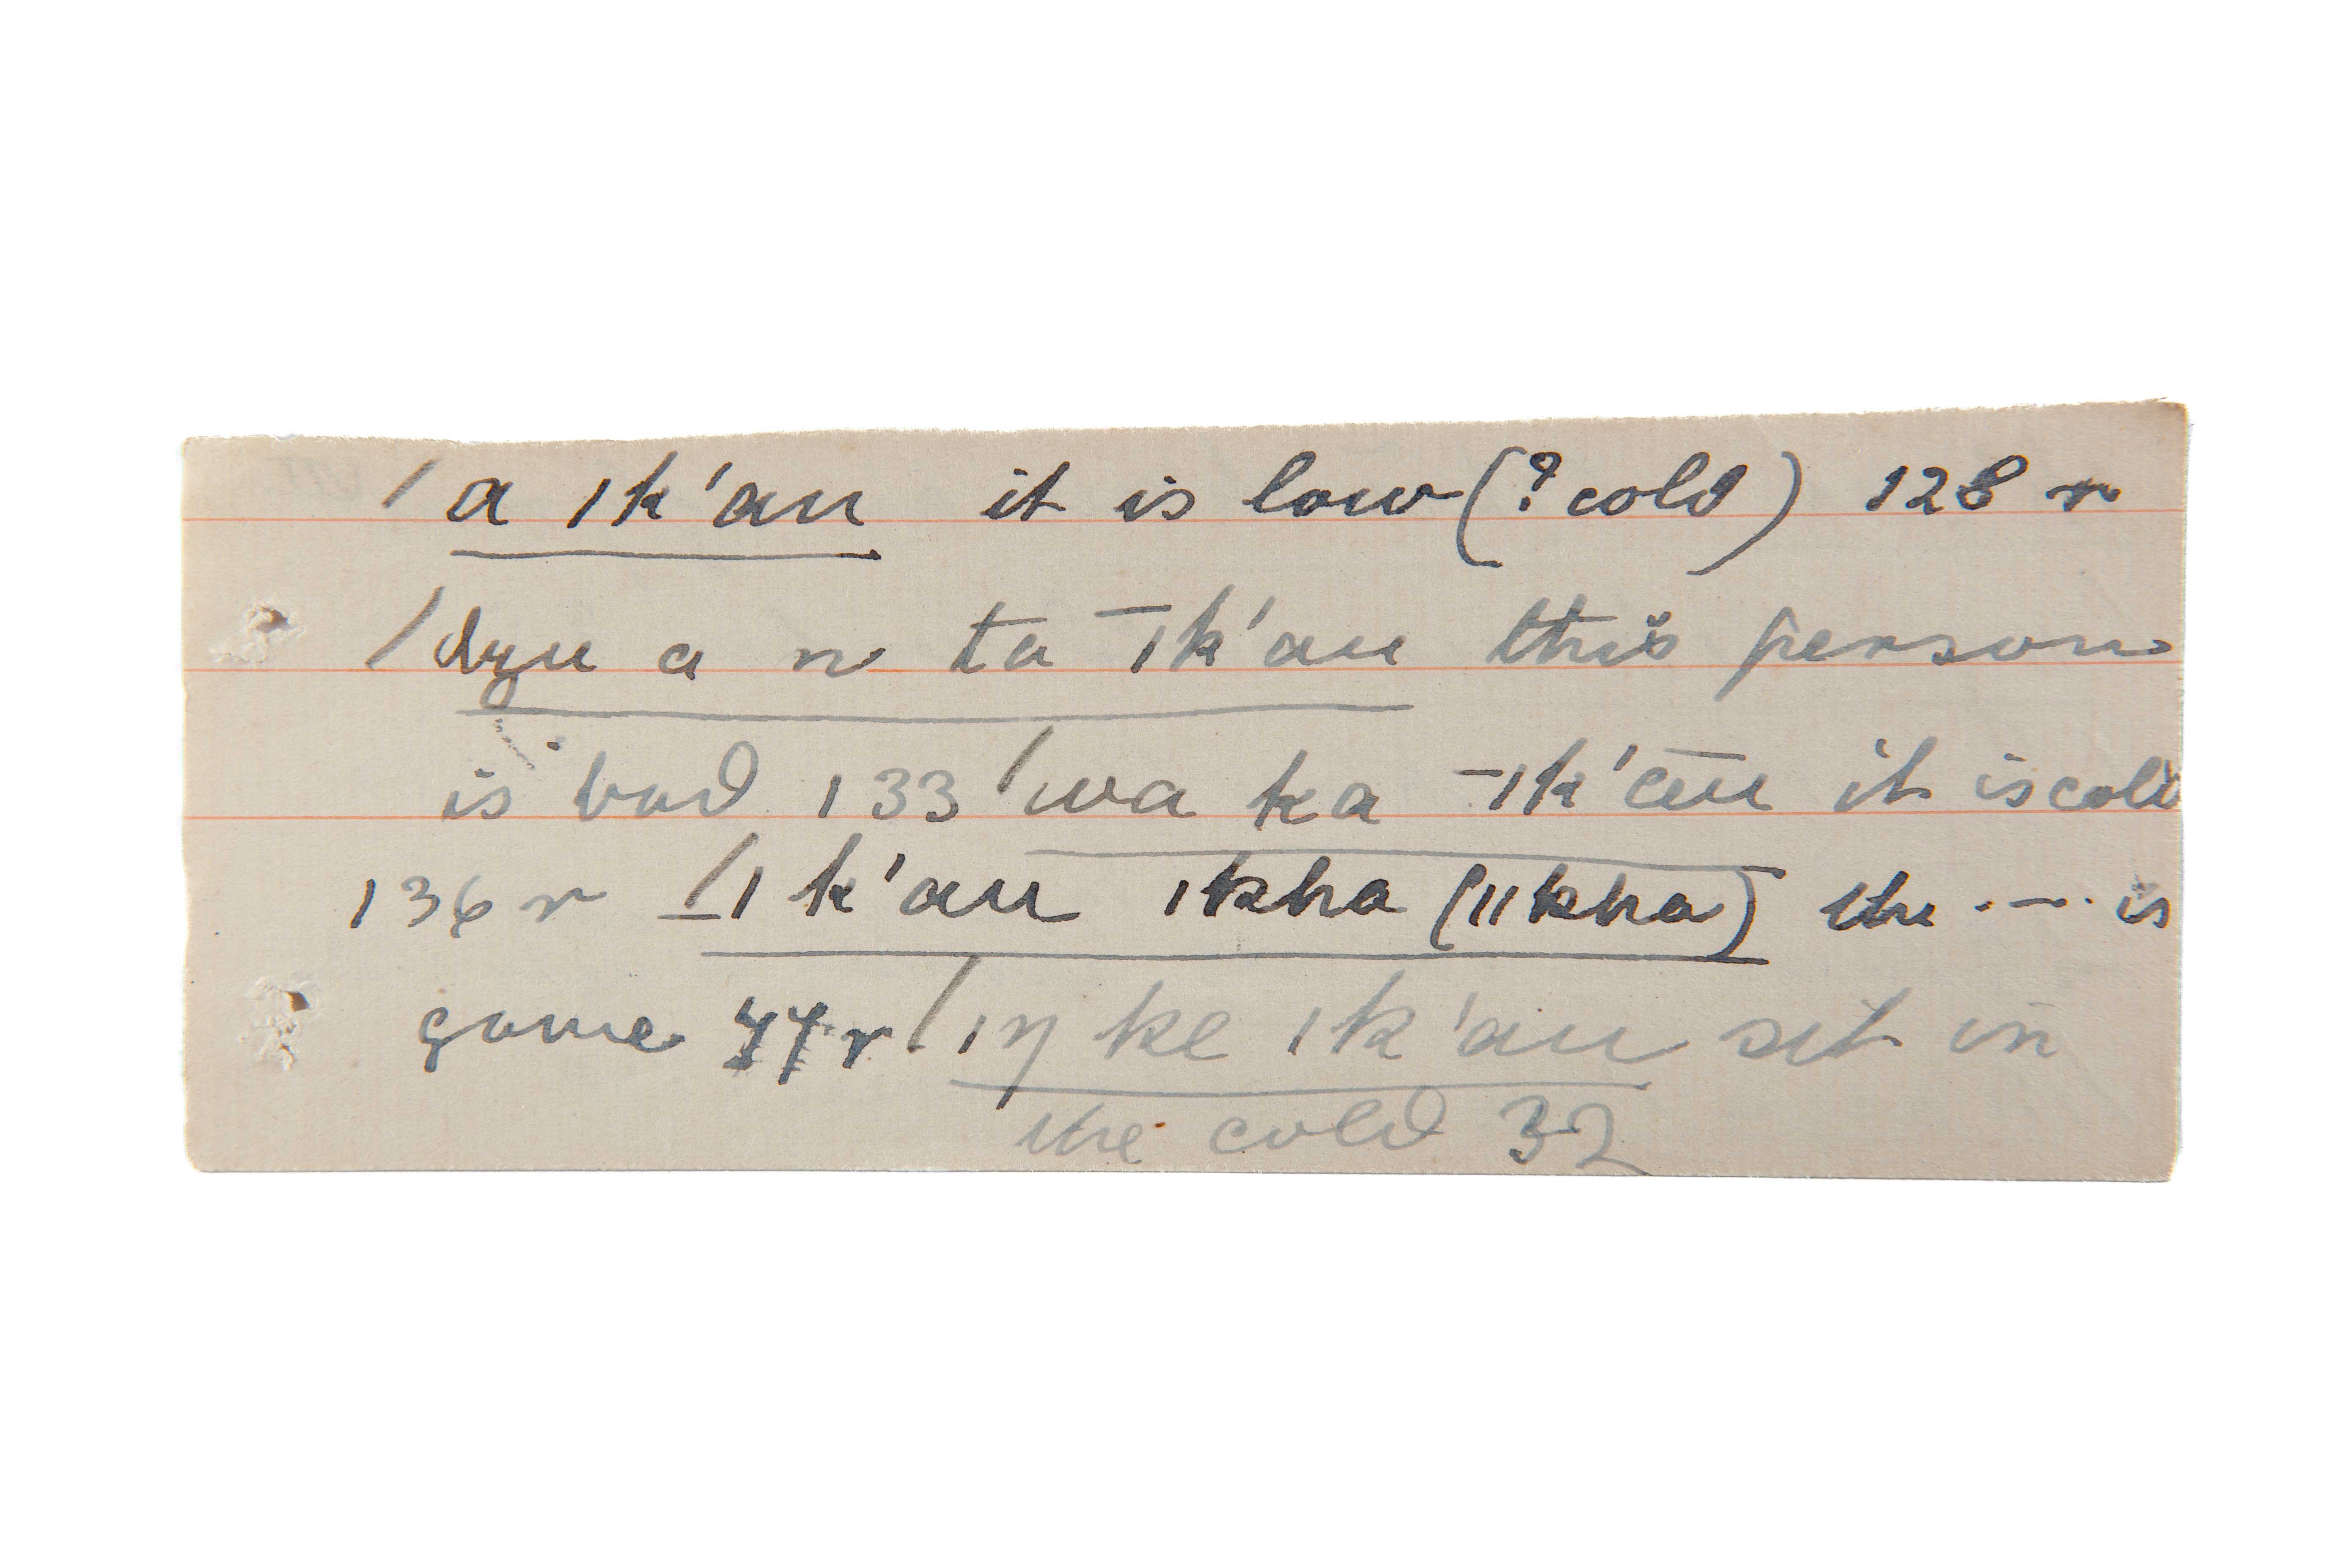 /a ǀk'au it is low (? cold) 128 r
/dzu a n ta ¯ǀk'au this person
is bad 133 /wa ka ¯ǀk'āu it is cold
136 r /_ǀk'au ǀkha (ǁkha) the .—. is
gone 44 r /ǀŋ ke ǀk'au sit in
the cold 32